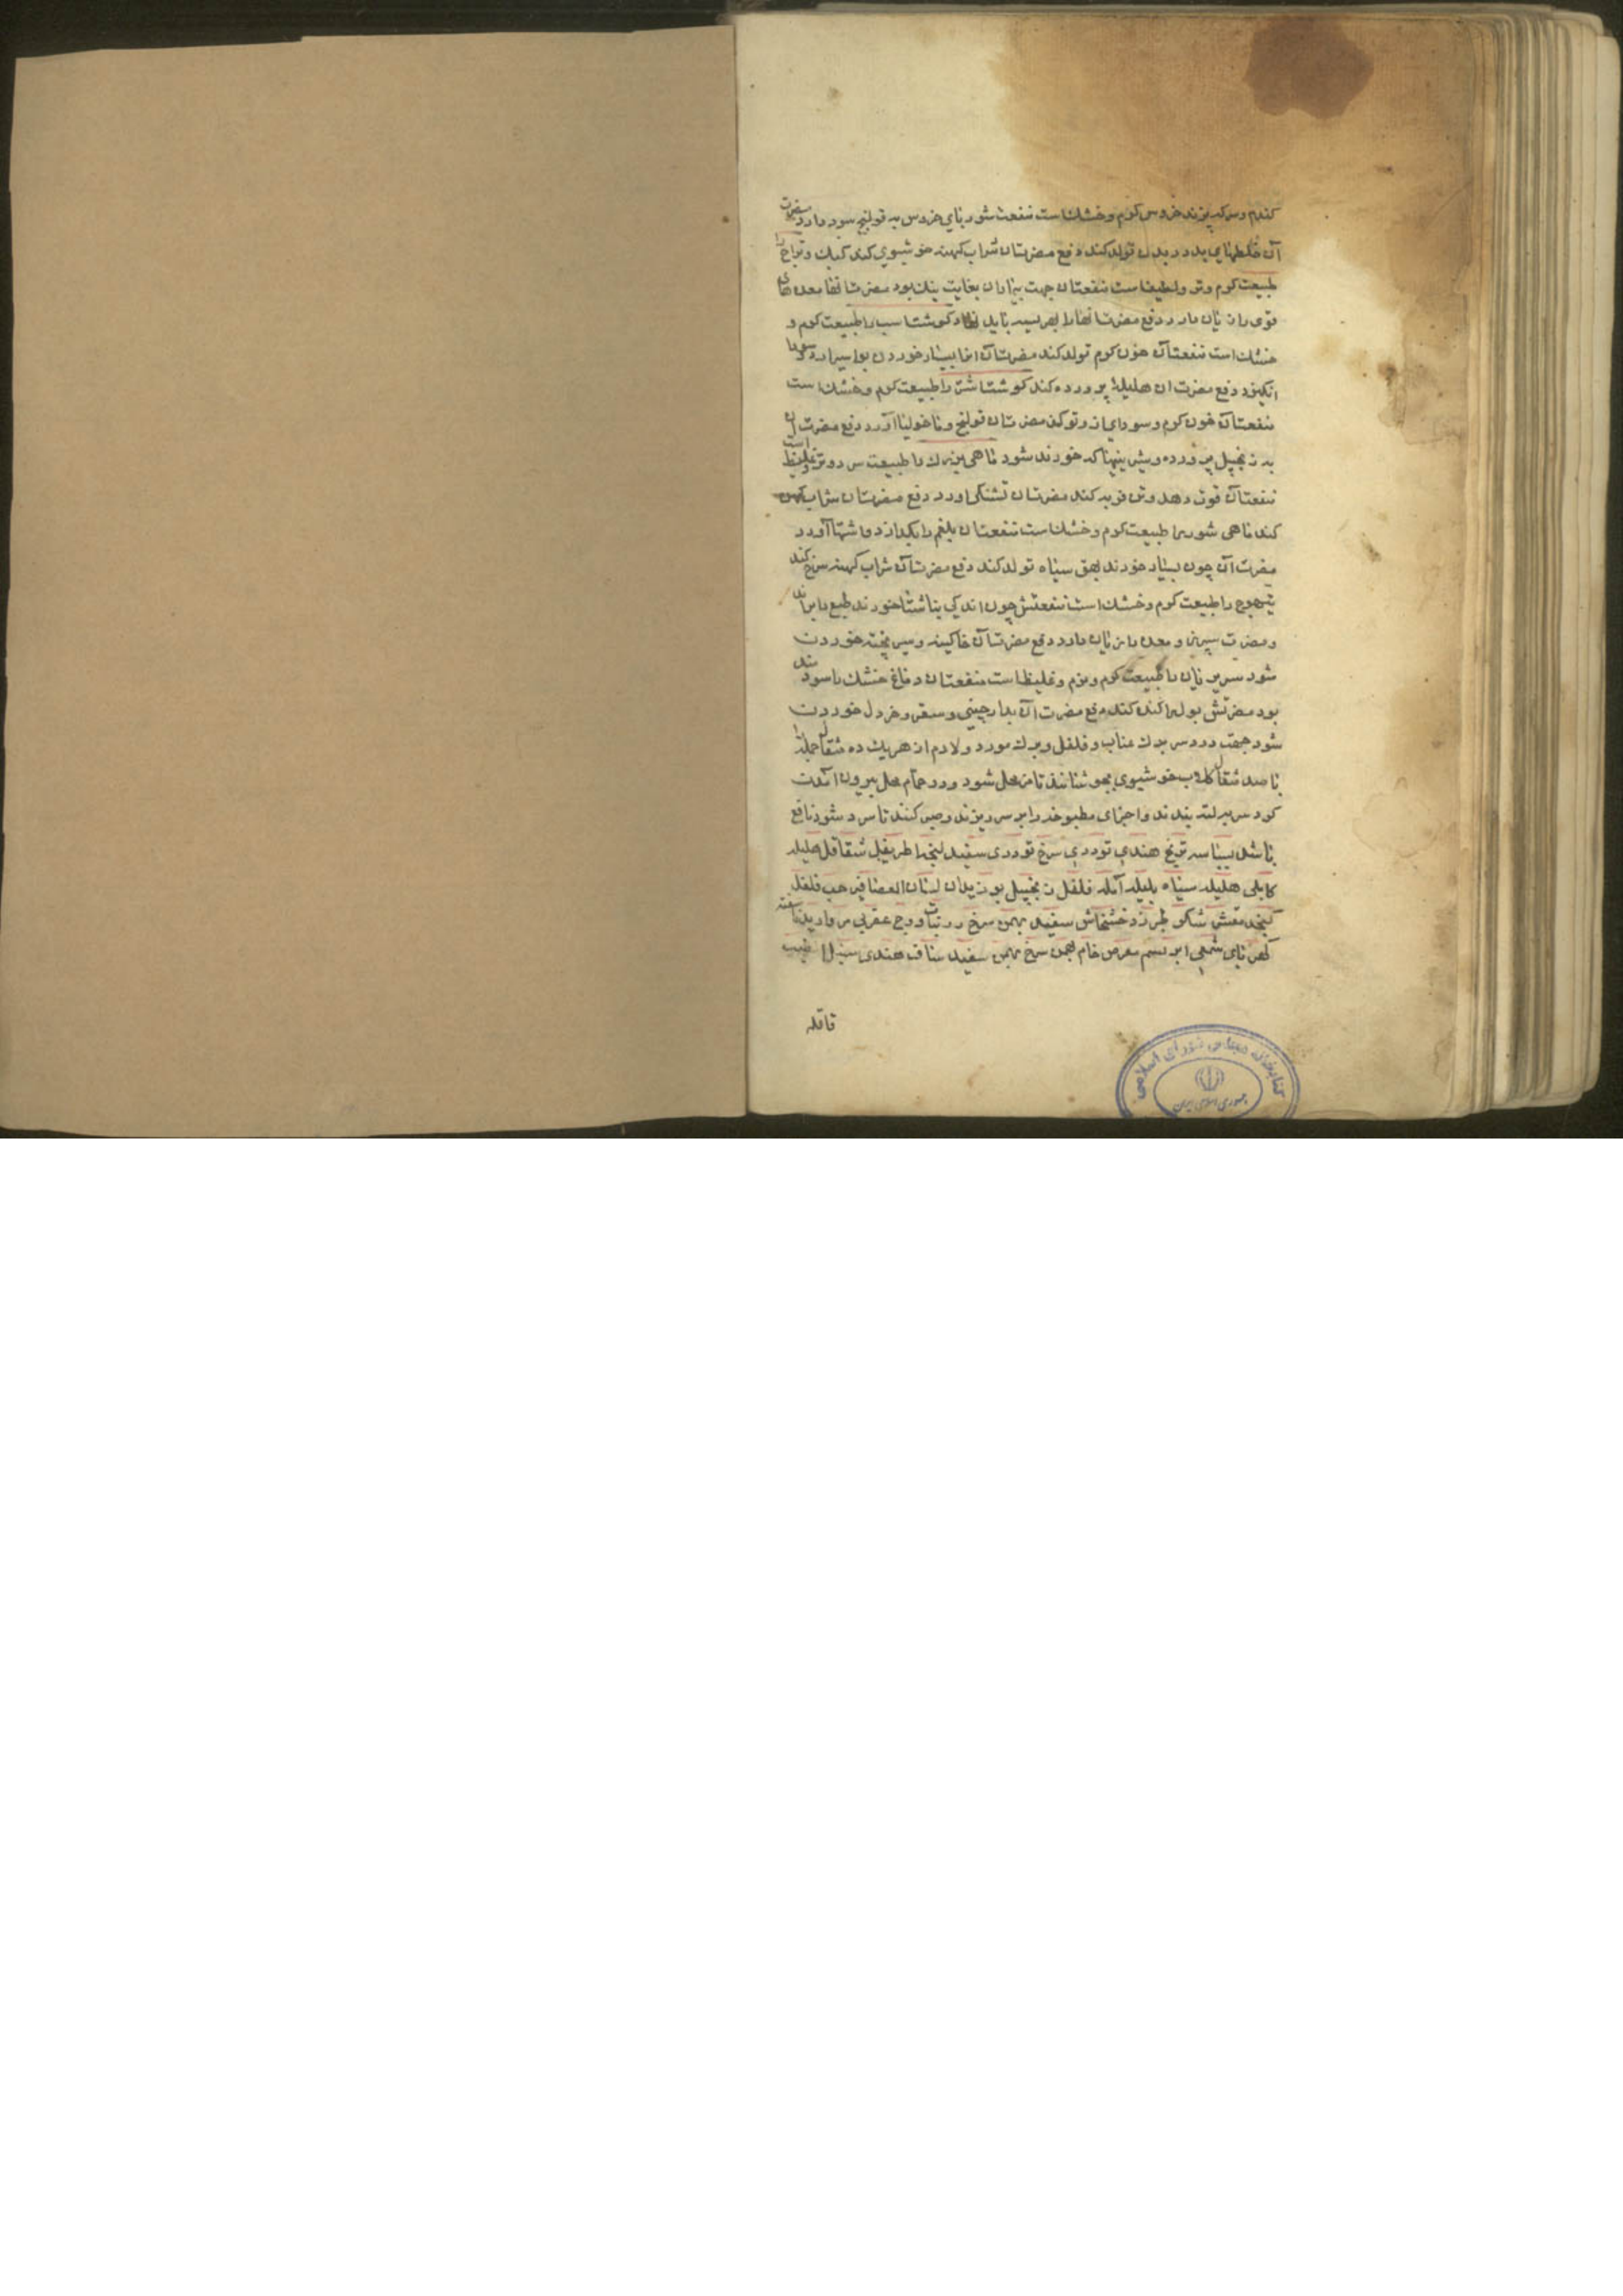 کندم و سرکه پزند خروس کرم و خشک است منفعت شوربای خروس به قولنج سود دارد مضرت
آن خلطهای بد در بدن تولد کند دفع مضرت ان شراب کهنه خوشبوی کند کبک و دراج را
طبیعت کرم و تر و لطیف است منفعت ان جهت بیماران بغایت نیک بود مضرت انها معده های
قوی را زیان دارد دفع مضرت انها را بهریسه باید نهاد کوشت اسب را طبیعت کرم و
خشک است منفعت آن خون کرم تولد کند مضرت آن انها بسیار خوردن بواسیر ارد و سودا
انکیزد دفع مضرت ان هلیلهٔ پرورده کند کوشت اشتر را طبیعت کرم و خشک است
منفعت آن خون کرم و سودای از و تولد کند مضرت ان قولنج و ماخولیا آورد دفع مضرت ان
به زنجبیل پرورده و شیرینیها که خورند شود ماهی بزرک را طبیعت سرد و تر و غلیظ است
منفعت آن قوت دهد و تن فربه کند مضرت ان تشنکی اورد دفع مضرت ان شراب کهن
کند ماهی شور را طبیعت کرم و خشک است منفعت ان بلغم را بکدازد و اشتها آورد
مضرت آن چون بسیار خورند بهق سیاه تولد کند دفع مضرت آن شراب کهنه سرخ کند
تیهوج را طبیعت کرم و خشک است منفعتش چون اندکی بناشتا خورند طبع را براند
و مضرت سپرز و معده را زیان دارد دفع مضرت آن خاکینه و سیر پخته خوردن
شود سر بریان را طبیعت کرم و نرم و غلیظ است منفعت ان دماغ خشک را سودمند
بود مضرتش بول را کنده کند دفع مضرت ان بدارچینی و سعتر و خردل خوردن
شود جهت درد سر برک عناب و فلفل و برک مورد و لادم از هریک ده مثقال جمله را
با صد مثقال کلاب خوشبوی بجوشانند تا مزمحل شود و در حمام محل بیرون آمدن
کرد سر بر لته بندند و اجزای مطبوخه را بر سر ریزند و صبر کنند تا سرد شود نافع
باشد بسباسه ترنج هندی تودری سرخ تودری سفید لنجه اطریفل شقاقل هلیله
کابلی هلیله سیاه بلیله آمله فلفل زنجبیل بوزیدان لسان العصافیر حب فلفل
کنجد مقشر شکر طبرزد خشخاش سفید بهمن سرخ زرنباد درونج عقربی مروارید ناسفته
کهربای شمعی ابریشم مقرض خام بهمن سرخ بهمن سفید ساذج هندی سنبل الطیب
قاقله
کتابخانه مجلس شورای اسلامی
جمهوری اسلامی ایران